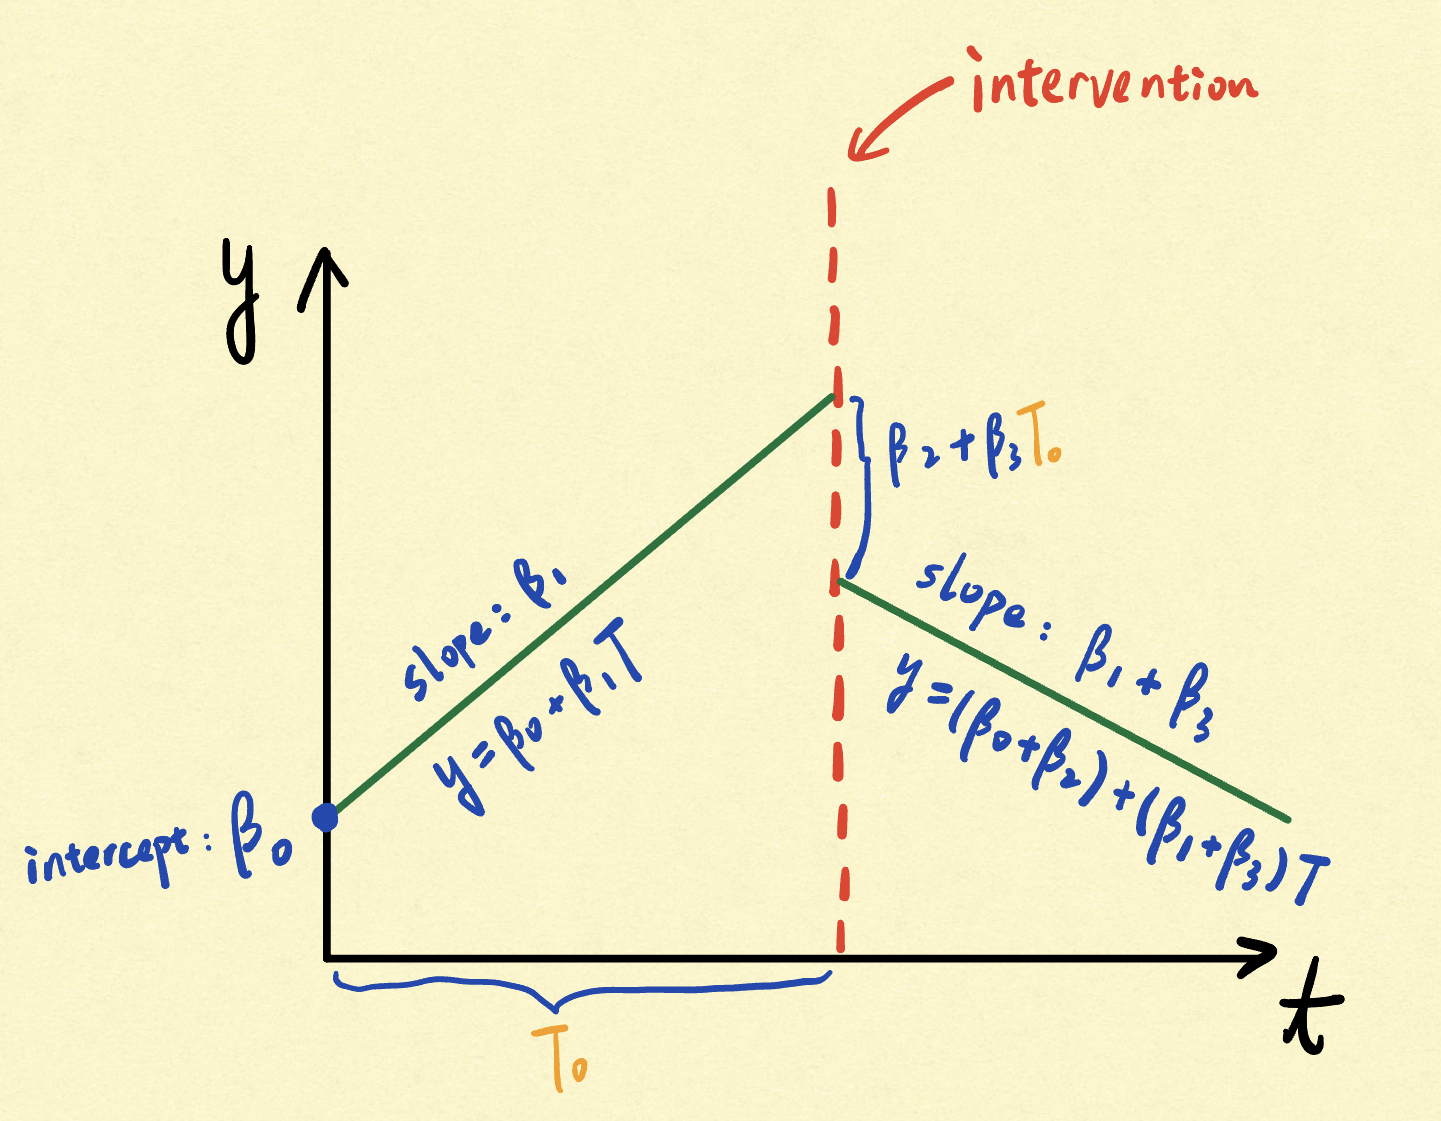 intervention
y
β₂ + β₃T₀
slope: β₁
slope: β₁ + β₃
y = β₀ + β₁T
y = (β₀+β₂) + (β₁+β₃)T
intercept: β₀
t
T₀